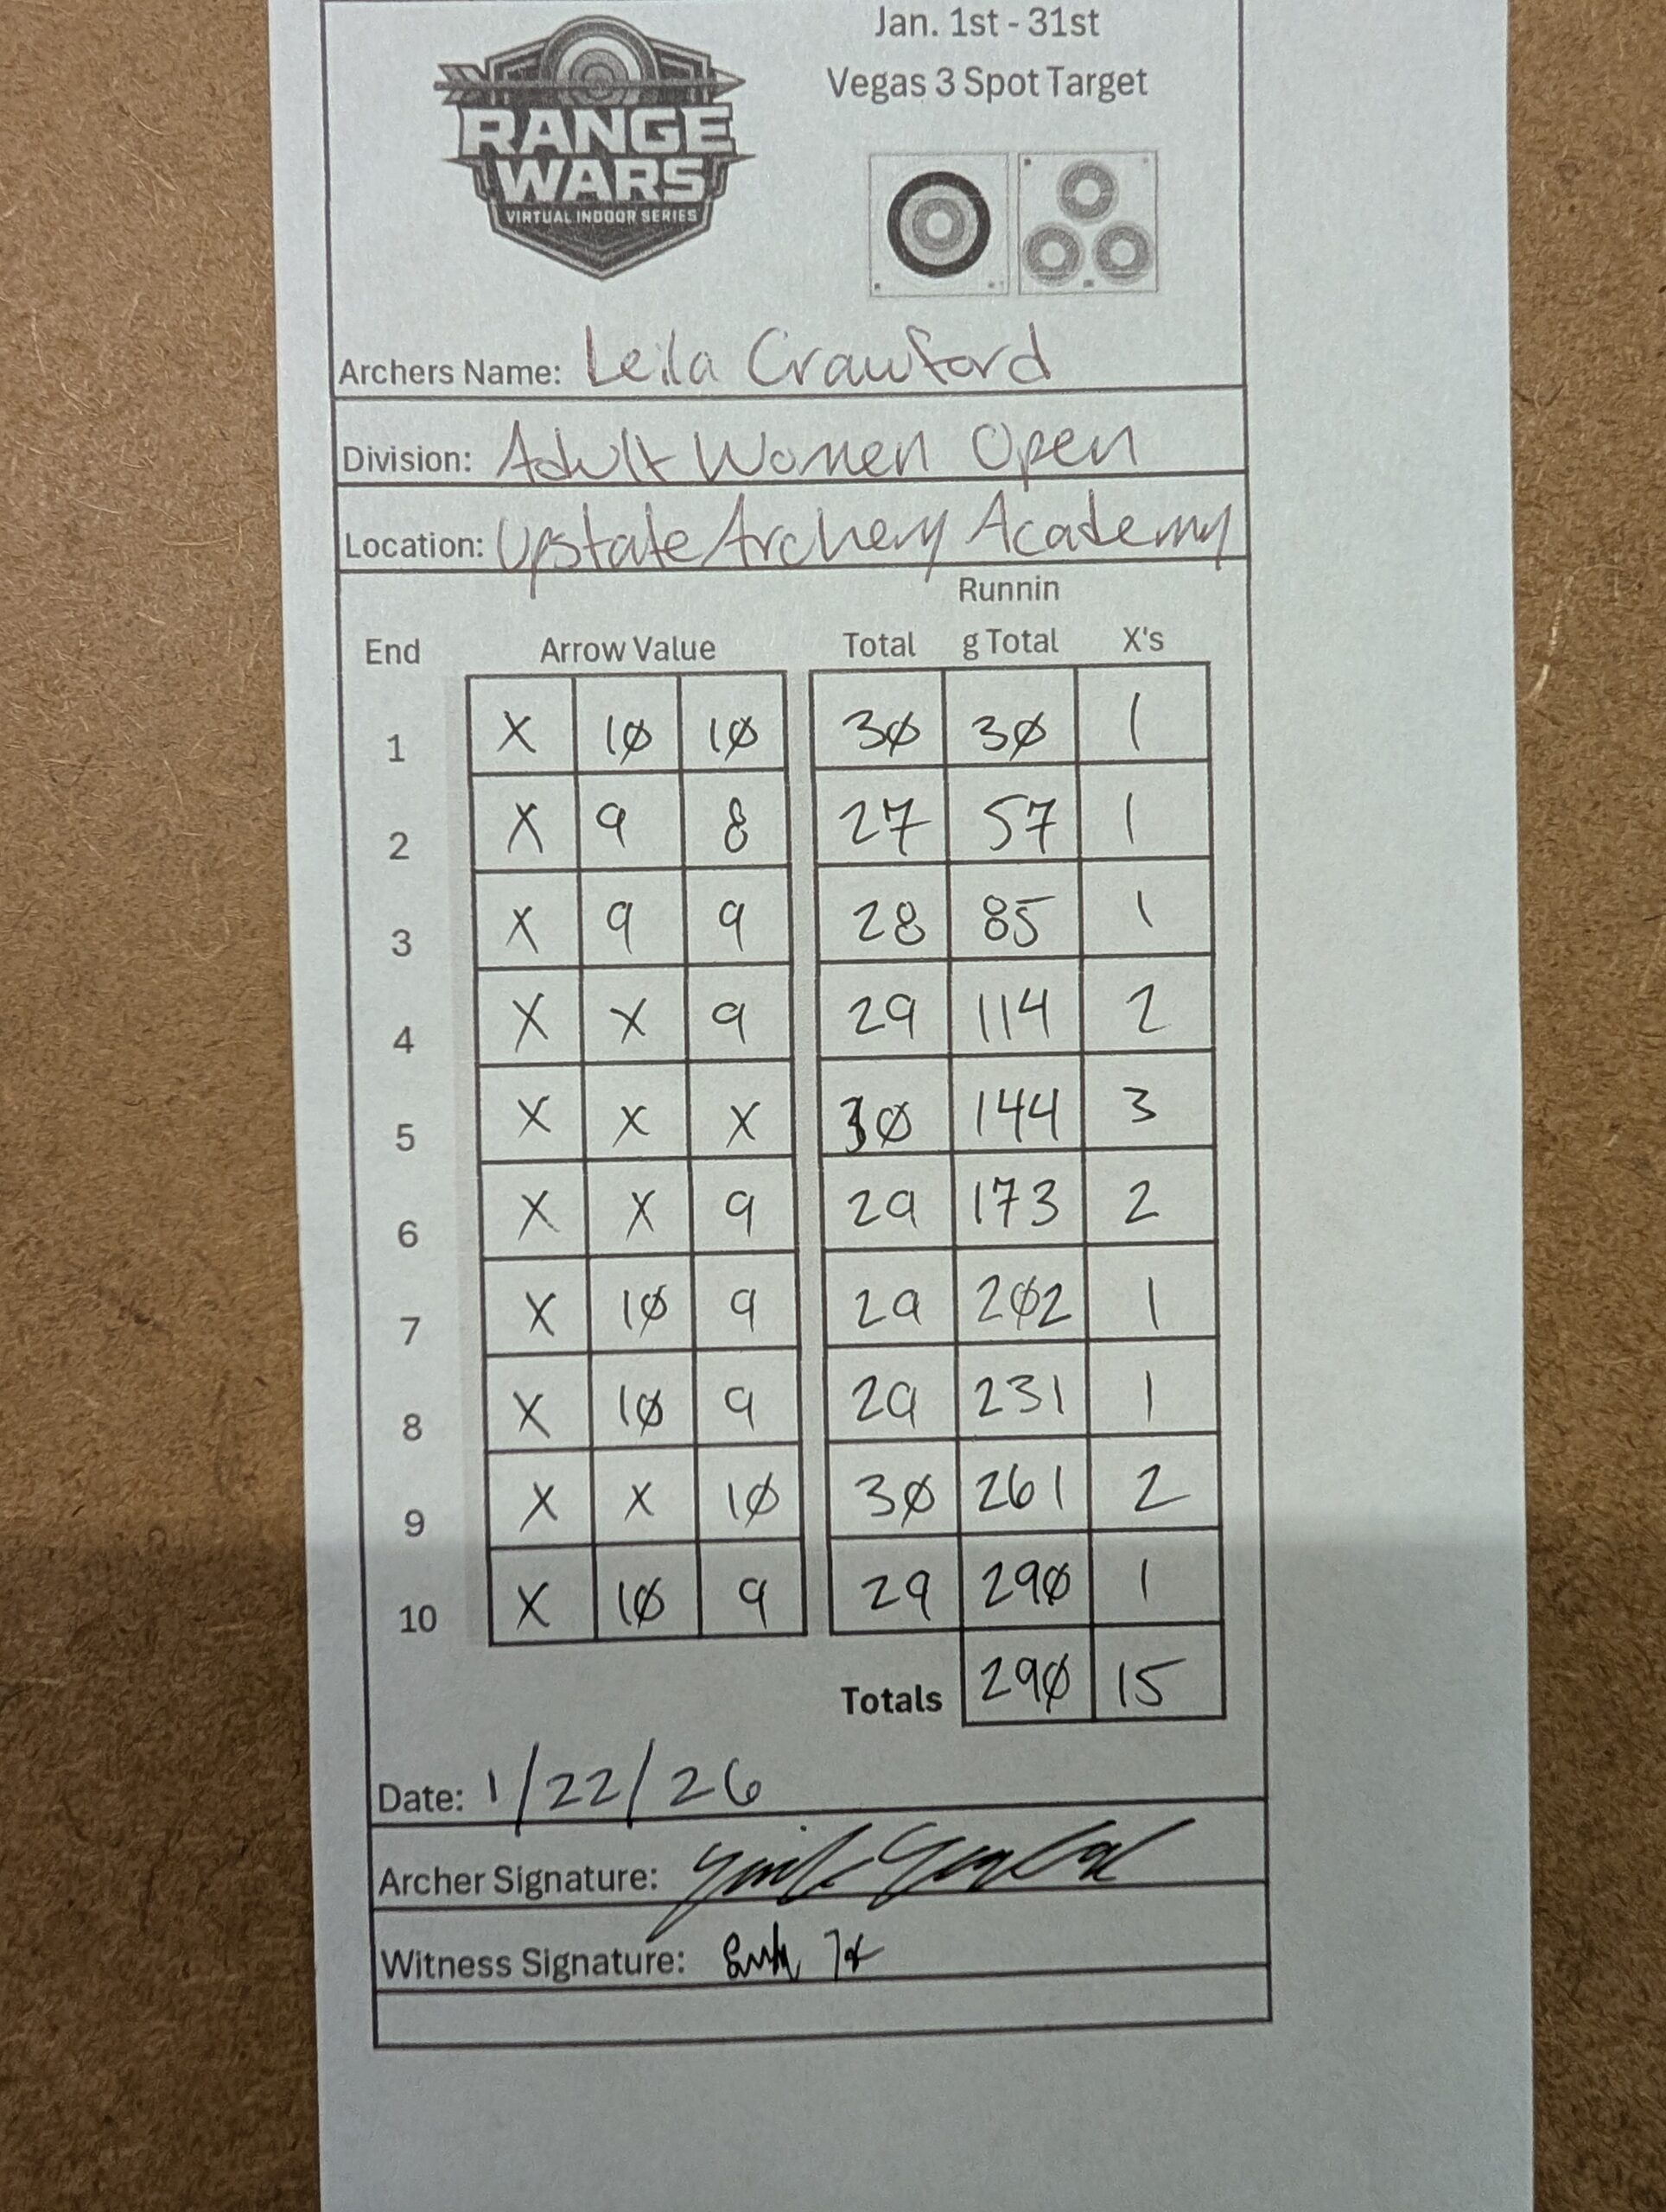 Jan. 1st - 31st
Vegas 3 Spot Target
RANGE
WARS
VIRTUAL INDOOR SERIES
Archers Name: Leila Crawford
Division: Adult Women Open
Location: Upstate Archery Academy
Runnin
End Arrow Value Total g Total X's
1 X 1Ø 1Ø 3Ø 3Ø 1
2 X 9 8 27 57 1
3 X 9 9 28 85 1
4 X X 9 29 114 2
5 X X X 3Ø 144 3
6 X X 9 29 173 2
7 X 1Ø 9 29 2Ø2 1
8 X 1Ø 9 29 231 1
9 X X 1Ø 3Ø 261 2
10 X 1Ø 9 29 29Ø 1
Totals 29Ø 15
Date: 1/22/26
Archer Signature:
Witness Signature: